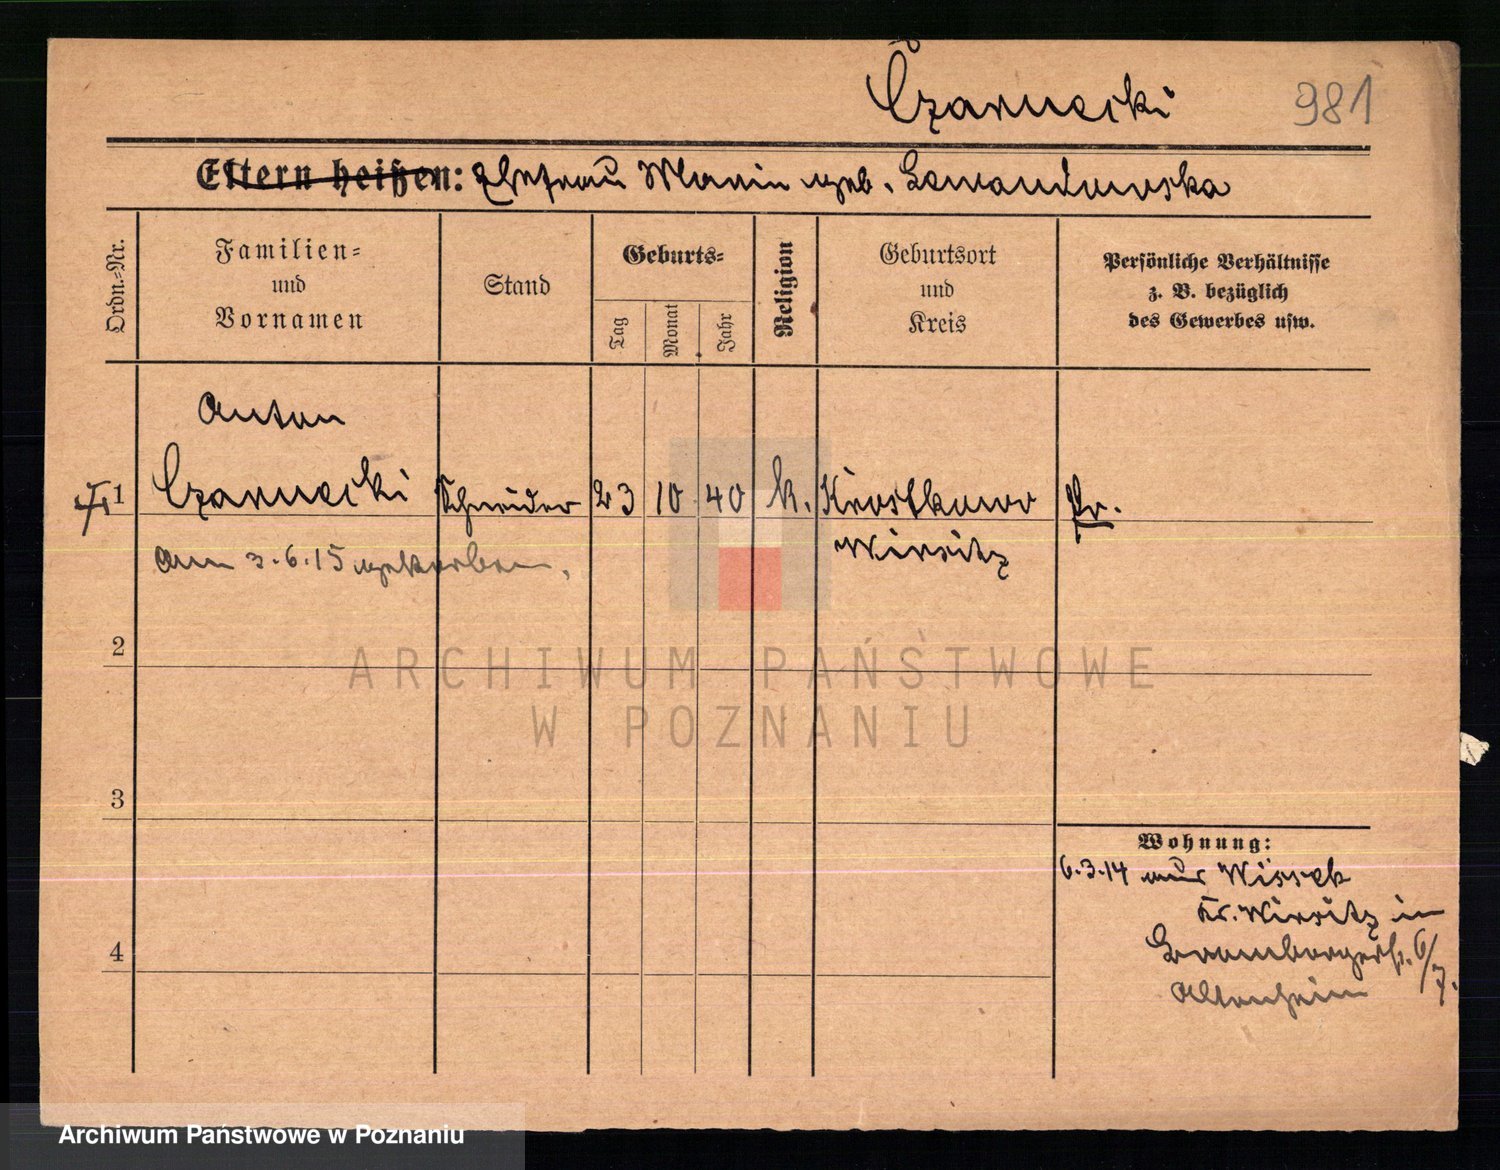 Czarnecki
981
Eltern heißen: Ehefrau Marie geb. Lewandowska
Ordn.-Nr.
Familien-
und
Vornamen
Stand
Geburts-
Tag
Monat
Jahr
Religion
Geburtsort
und
Kreis
Persönliche Verhältnisse
z. B. bezüglich
des Gewerbes usw.
Anton
1 Czarnecki Schneider 23 10 40 k. Krostkowo Pr.
Wirsitz
Am 3.6.15 gestorben.
2
3
4
Wohnung:
6.3.14 aus Wissek
Kr. Wirsitz in
Brombergerstr. 6/7.
Altenheim
ARCHIWUM PAŃSTWOWE
W POZNANIU
Archiwum Państwowe w Poznaniu